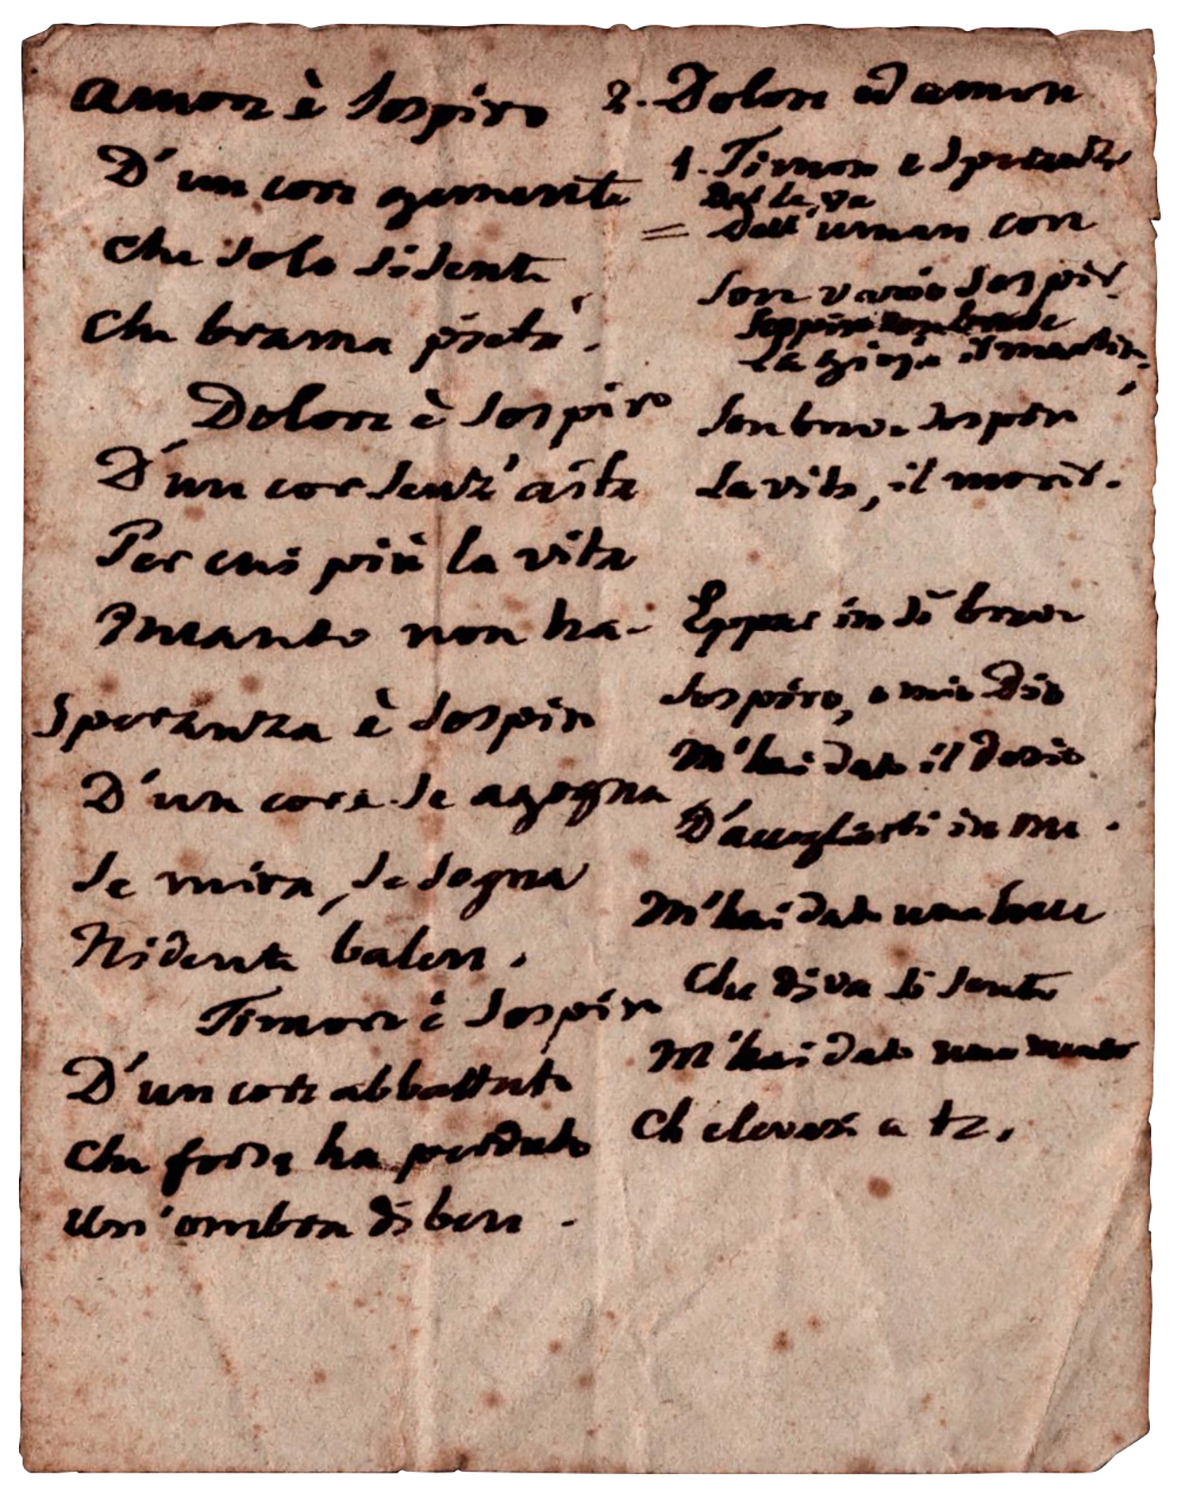 Amore è sospiro
D'un core gemente
Che solo si sente
Che brama pietà.
Dolore è sospiro
D'un cor senz'aita
Per cui più la vita
Incanto non ha.
Speranza è sospiro
D'un core se agogna
Se mira, se sogna
Ridente balen.
Timore è sospiro
D'un core abbattuto
Che forse ha perduto
Un'ombra di ben.
2. Dolore ed amore
1. Timore e speranza
= Dell'uman core
Son vario sospir.
La gioja il martir,
Son breve sospiro
La vita, il morir.
Eppur in sì breve
Sospiro, o mio Dio
M'hai dato il desio
D'accoglierti in me.
M'hai dato una luce
Che diva si sente
M'hai dato una mente
Ch'elevasi a te.